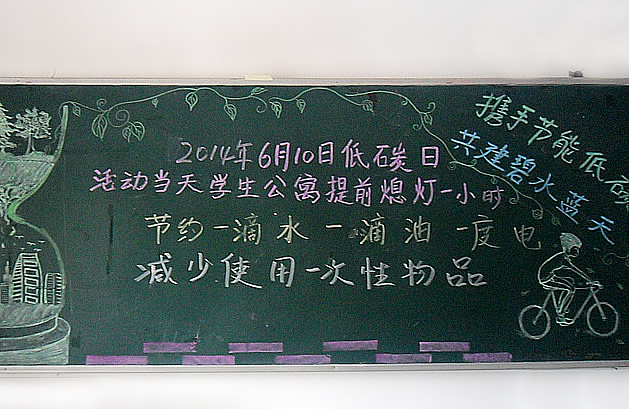 2014年6月10日低碳日
活动当天学生公寓提前熄灯一小时
节约一滴水一滴油一度电
减少使用一次性物品
携手节能低碳
共建碧水蓝天